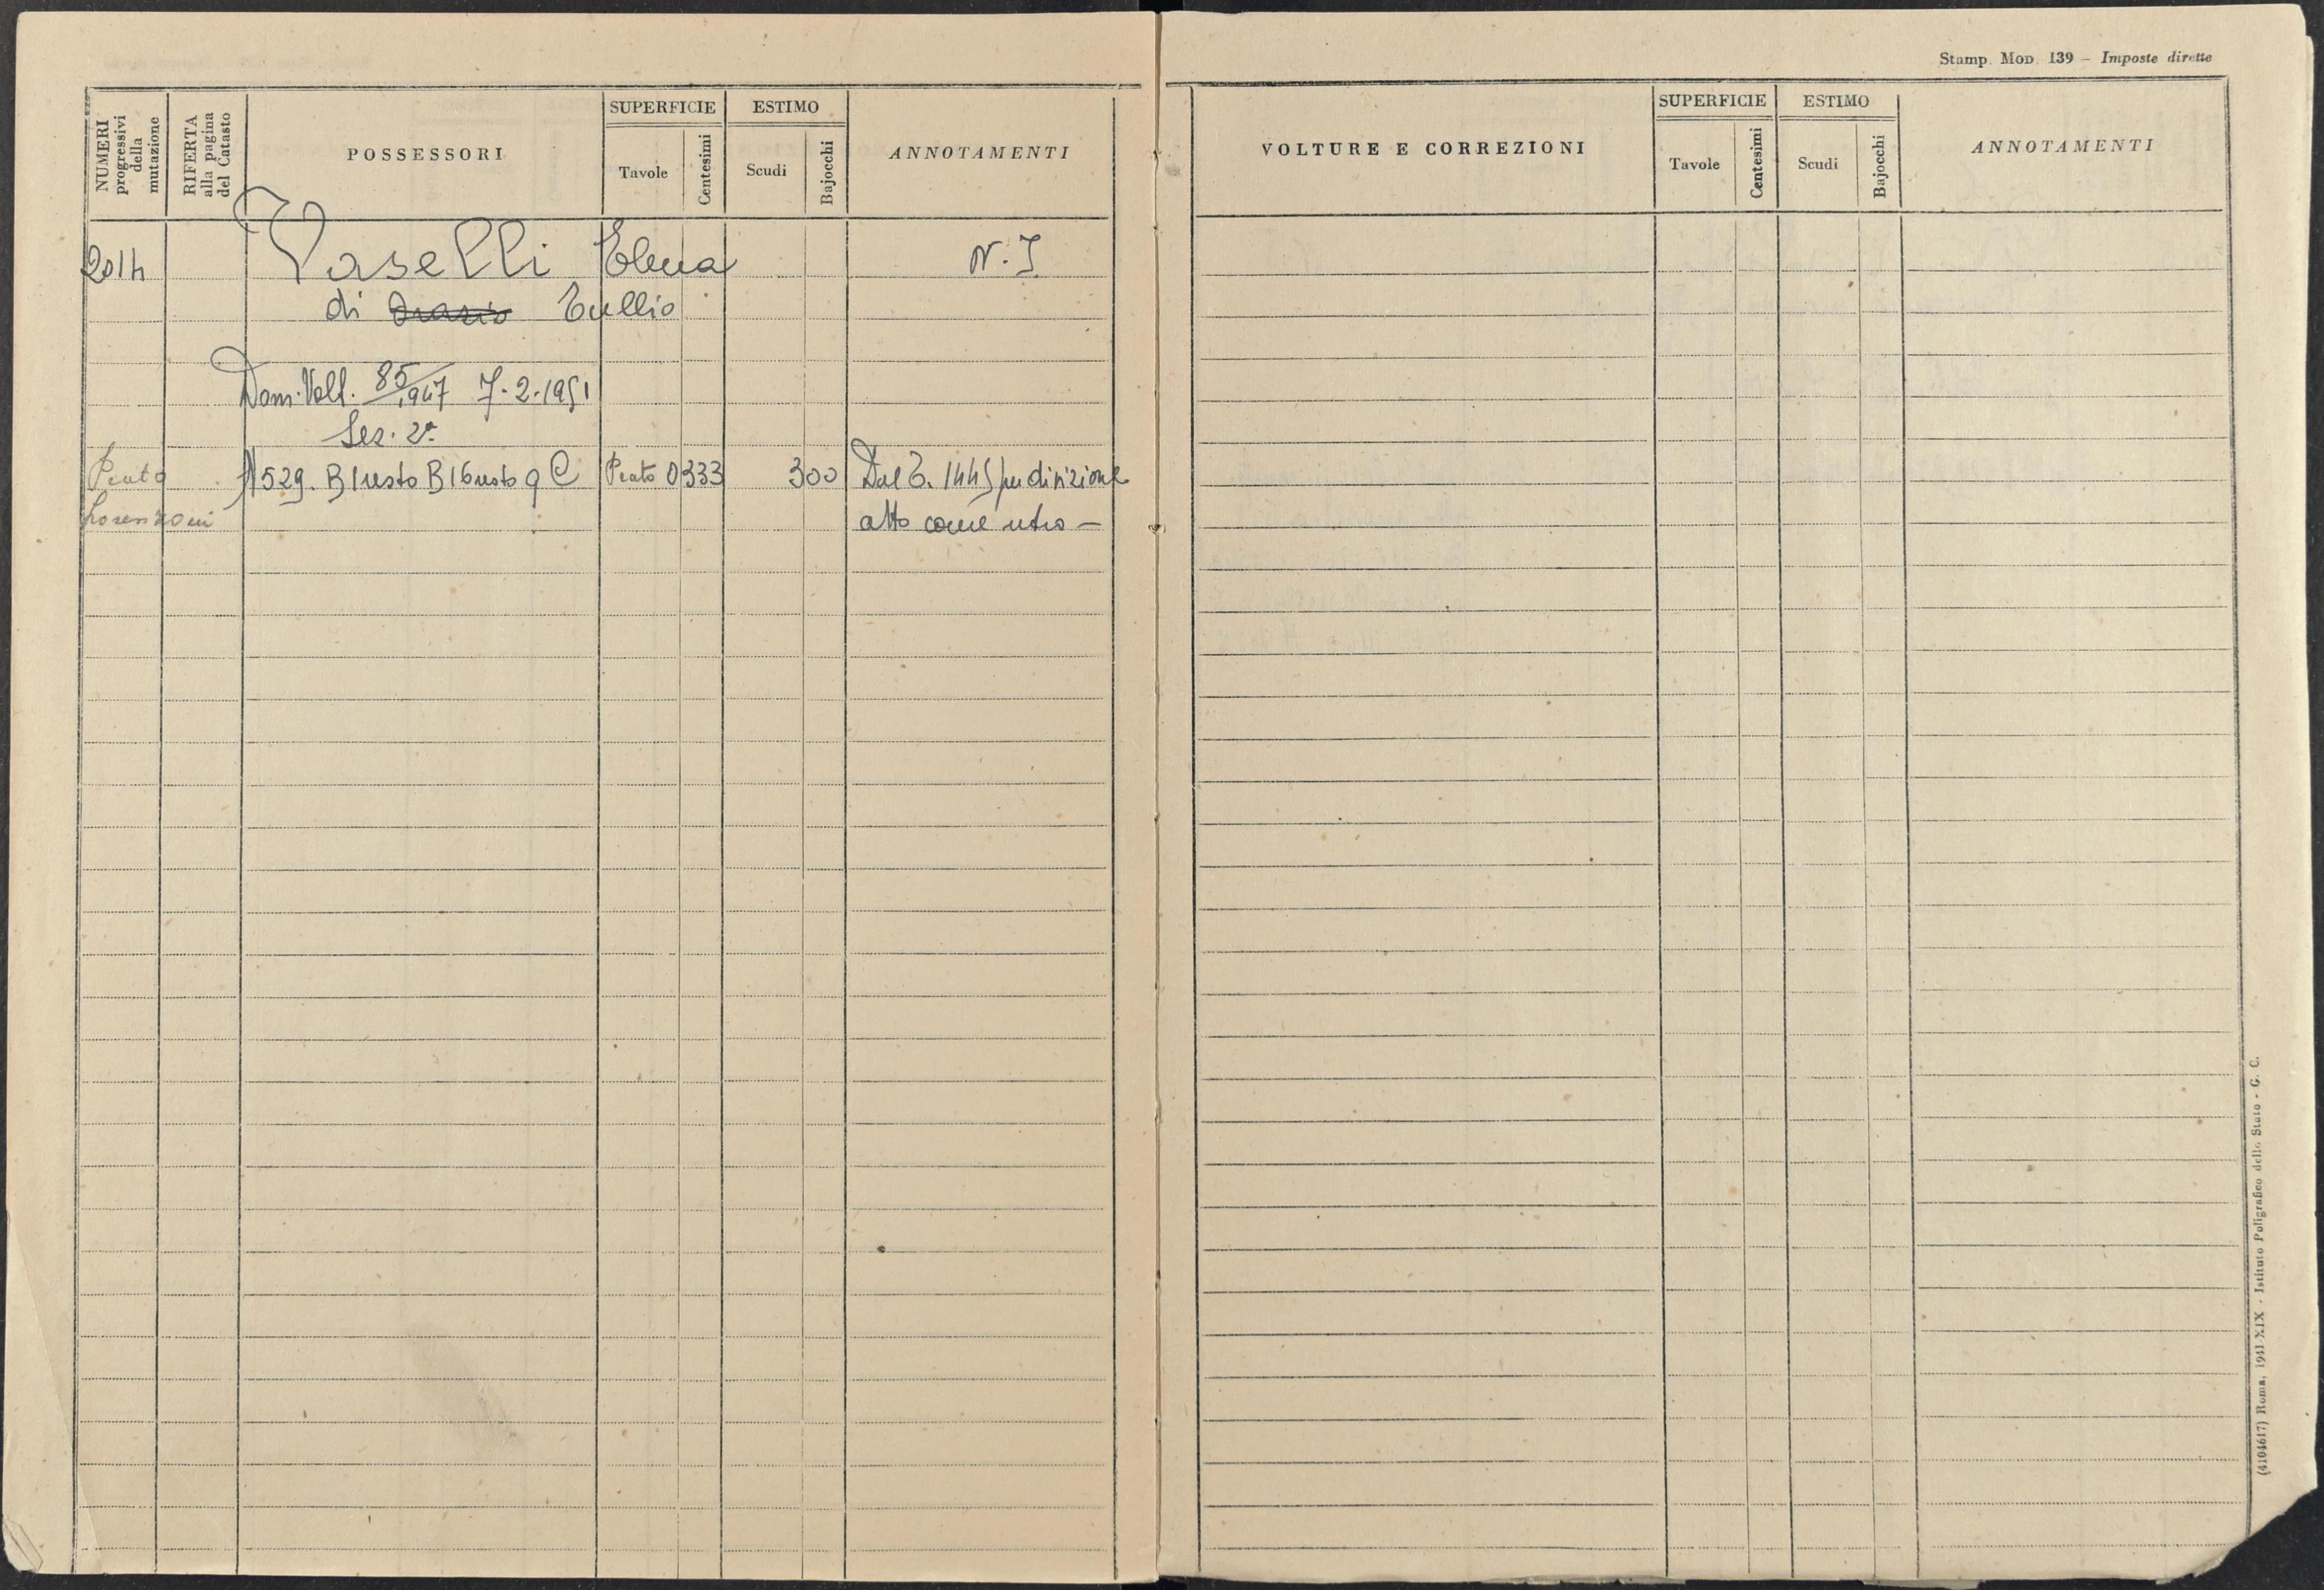 Stamp. Mod. 139 – Imposte dirette
NUMERI progressivi della mutazione
RIFERTA alla pagina del Catasto
POSSESSORI
SUPERFICIE
Tavole
Centesimi
ESTIMO
Scudi
Bajocchi
ANNOTAMENTI
VOLTURE E CORREZIONI
SUPERFICIE
Tavole
Centesimi
ESTIMO
Scudi
Bajocchi
ANNOTAMENTI
2014 Vaselli Elena N. I
di Orazio Tullio
Dom. Volt. 85/947 7-2-1951
Sez. 2ª
Prato 529. B 1 resto B 16 resto q C Prato 0 333 300 Dal T. 1445 per divizione
Lorenzoni atto come retro –
(4104617) Roma, 1941 XIX - Istituto Poligrafico dello Stato - G. C.